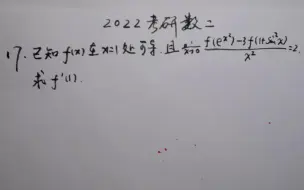 2022考研数二
17. 已知f(x)在x=1处可导.且lim x→0 f(e^{x²})-3f(1+sin²x) / x² =2.
求f'(1).